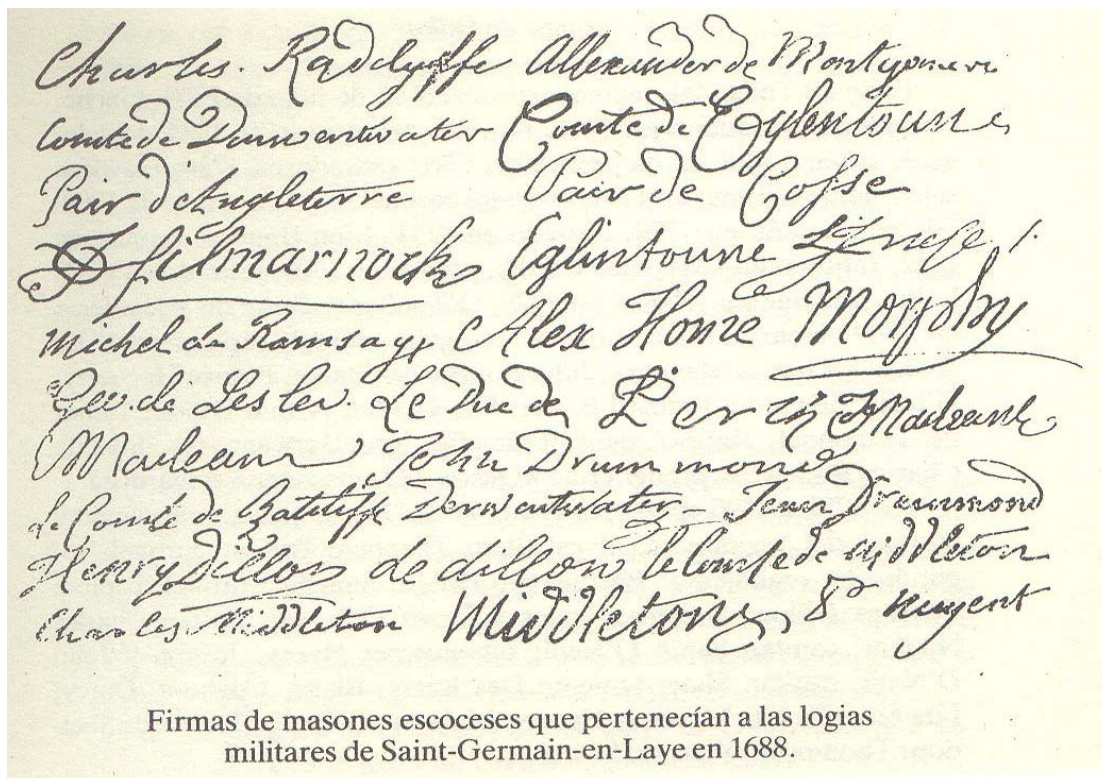 Charles. Radclyffe Allexander de Montgomeri
Comte de Darwentwater Comte de Eglentoune
Pair d'Angleterre Pair de Cosse
Kilmarnock Eglintoune
Michel de Ramsay Alex Home Morphy
Geo. de Lesley. Le Duc de Perth
Macleane John Drummond
Le Comte de Ratcliffe Derwentwater_ Jean Drummond
Henry Dillon de dillon le Comte de Middleton
Charles Middleton Middleton nugent
Firmas de masones escoceses que pertenecían a las logias
militares de Saint-Germain-en-Laye en 1688.